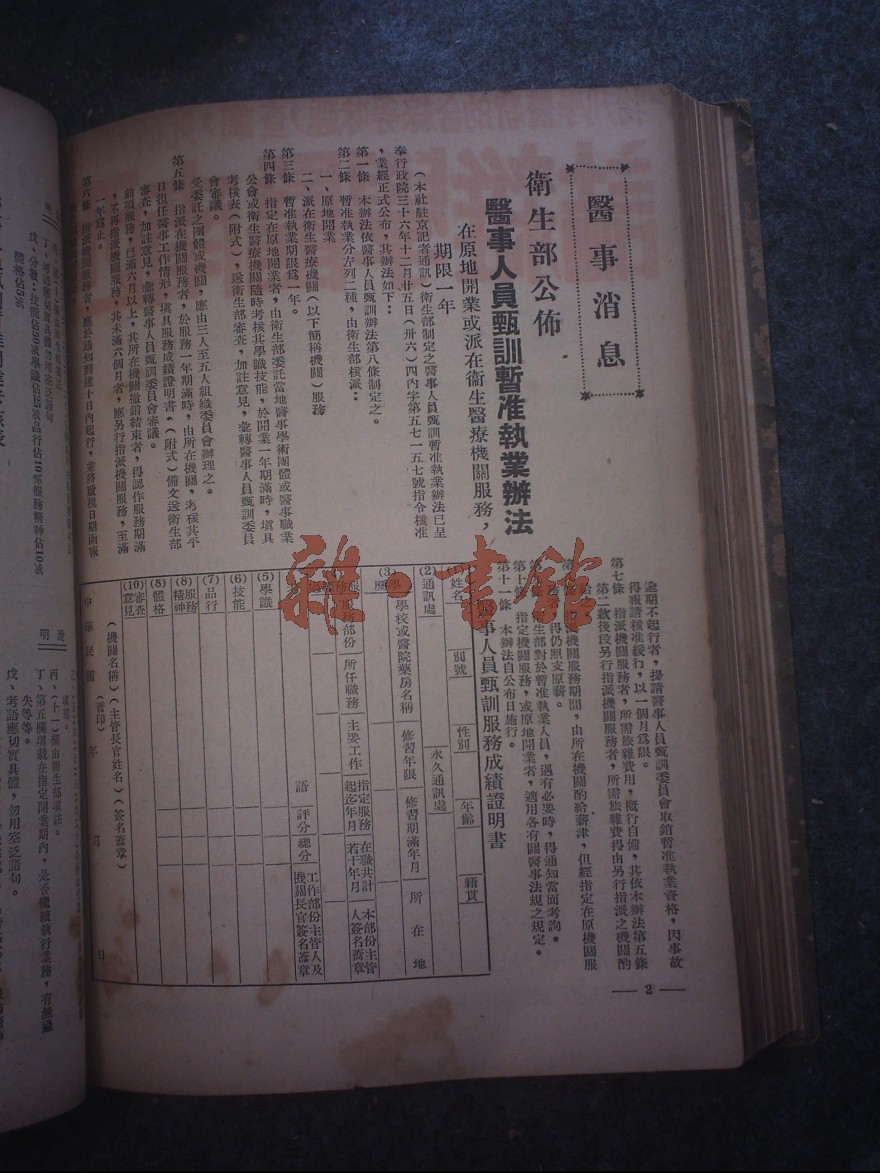 醫事消息
衛生部公佈
醫事人員甄訓暫准執業辦法
在原地開業或派在衛生醫療機關服務，
期限一年
（本社駐京記者通訊）衛生部制定之醫事人員甄訓暫准執業辦法已呈
奉行政院三十六年十二月廿五日（卅六）四內字第五七一五七號指令核准
，業經正式公布，其辦法如下：
第一條　本辦法依醫事人員甄訓辦法第八條制定之。
第二條　暫准執業分左列二種，由衛生部核派：
一、原地開業
二、派在衛生醫療機關（以下簡稱機關）服務
第三條　暫准執業期限為一年。
第四條　指定在原地開業者，由衛生部委託當地醫事學術團體或醫事職業
公會或衛生醫療機關隨時考核其學識技能，於開業一年期滿時，填具
考核表（附式），送衛生部審查，加註意見，彙轉醫事人員甄訓委員
會審議。
受委託之團體或機關，應由三人至五人組織委員會辦理之。
第五條　指派在機關服務者，於服務一年期滿時，由所在機關，考核其平
日担任醫事工作情形，填具服務成績證明書（附式）備文送衛生部
審查，加註意見，彙轉醫事人員甄訓委員會審議。
前項服務，已滿六月以上，其所在機關撤銷結束者，得認作服務期滿
，不再指派機關服務，其未滿六個月者，應另行指派機關服務，至滿
一年為止。
第六條　指派機關服務者，應於通知到達十日內起行，並將啟程日期函報
逾期不起行者，提請醫事人員甄訓委員會取銷暫准執業資格，因事故
得報請核准緩行，以一個月為限。
第七條　指派機關服務者，所需旅雜費用，概行自備，其依本辦法第五條
第二款後段另行指派機關服務者，所需旅雜費得由另行指派之機關酌
機關服務期間，由所在機關酌給薪津，但經指定在原機關服
得仍照支原薪。
衛生部對於暫准執業人員，遇有必要時，得通知當面考詢。
第十　指定機關服務，或原地開業者，適用各有關醫事法規之規定。
第十一條　本辦法自公布日施行。
事人員甄訓服務成績證明書
姓名　別號　性別　年齡　籍貫
(2)通訊處　永久通訊處
(3)學　學校或醫院藥房名稱　修習年限　修習期滿年月　所在地
服務部份　所任職務　主要工作　指定服務起迄年月　在職共計若干年月　本部份主管人簽名蓋章
語　評分　總分　工作部份主管人及機關長官簽名蓋章
(5)學識
(6)技能
(7)品行
(8)服務精神
(8)體格
(10)審查意見
（機關名稱）（主管長官姓名）（簽名蓋章）
中華民國　（蓋印）　年　月　日
— 2 —
雜·書館
戊、分數：技能佔50%學識佔25%品行佔10%服務精神佔10%
體格佔5%
明
丙、（十一）欄由衛生部填註。
丁、第五欄填載在指定開業期內，是否繼續執行業務，有無過
失等等。
戊、考語應切實具體，勿用空泛語句。